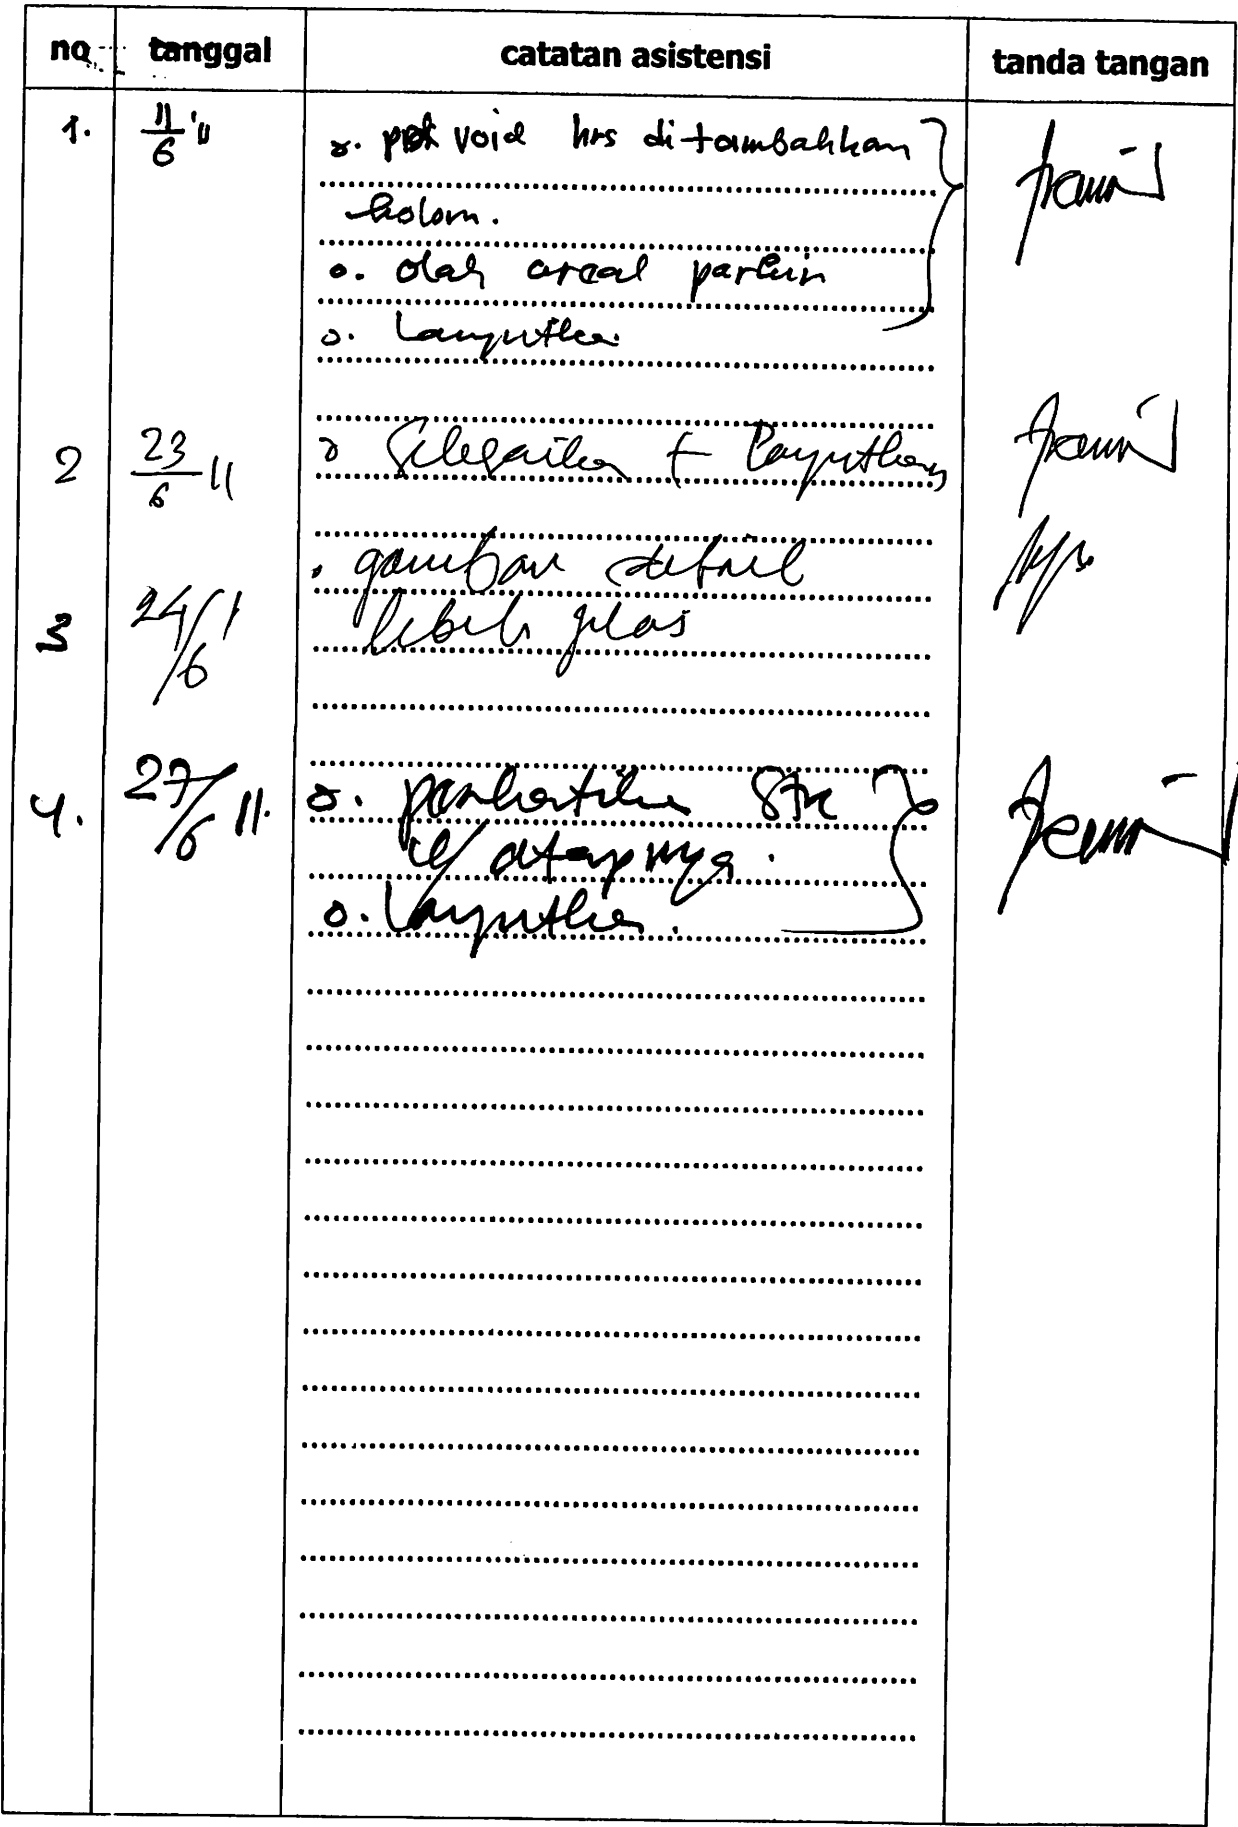 no tanggal catatan asistensi tanda tangan
1. 11/6 '11 o. pd void hrs ditambahkan
kolom.
o. olah areal parkir
o. Lanjutkan
2 23/6 11 o Selesaikan + Lanjutkan
. gambar detail
3 24/6 lebih jelas
4. 27/6 11. o. perhatikan Str
u/ atapnya.
o. Lanjutkan.